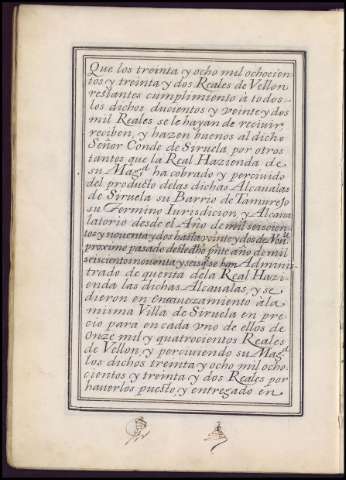 Que los treinta y ocho mil ochocien
tos y treinta y dos Reales de Vellon
restantes cumplimiento a todos
los dichos ducientos y veinte y dos
mil Reales se le hayan de recivir,
reciben, y hazen buenos al dicho
Señor Conde de Siruela, por otros
tantos que la Real Hazienda de
su Magd. ha cobrado y percivido
del producto de las dichas Alcavalas
de Siruela su Barrio de Tamurejo
su Termino Iurisdicion y Alcava
latorio desde el Año de mil seiscien
tos y noventa y dos hasta veinte y dos de
proximo pasado deste año de mil
seiscientos noventa y seis q se han Adminis
trado de quenta de la Real Hazi
enda las dichas Alcavalas, y se
dieron en Encavezamiento a la
misma Villa de Siruela en pre
cio para en cada vno de ellos de
Onze mil y quatrocientos Reales
de Vellon, y perciviendo su Magd.
los dichos treinta y ocho mil ocho
cientos y treinta y dos Reales por
haverlos puesto, y entregado en